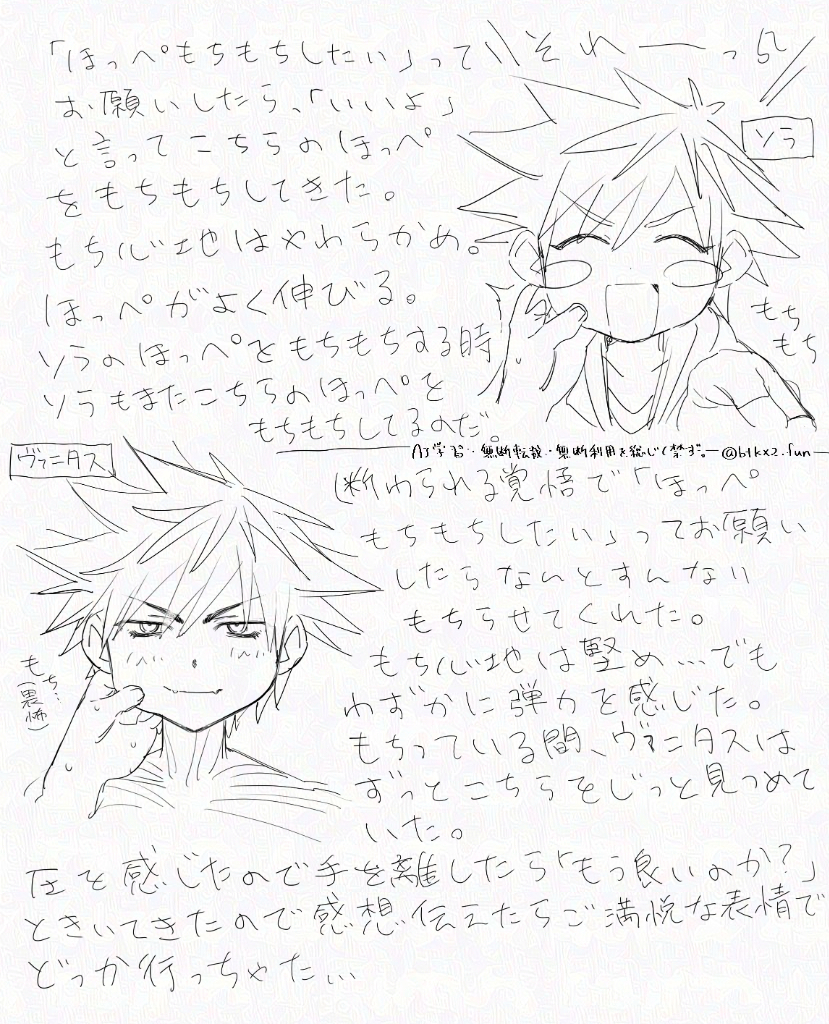 「ほっぺもちもちしたい」って
お願いしたら、「いいよ」
と言ってこちらのほっぺ
をもちもちしてきた。
もち心地はやわらかめ。
ほっぺがよく伸びる。
ソラのほっぺをもちもちする時
ソラもまたこちらのほっぺを
もちもちしてるのだ。
それーっ
ソラ
もち
もち
AI学習・無断転載・無断利用を総じて禁ず。ー@b1kx2.funー
ヴァニタス
断わられる覚悟で「ほっぺ
もちもちしたい」ってお願い
したらなんとすんない
もちらせてくれた。
もち心地は堅め…でも
わずかに弾力を感じた。
もちっている間、ヴァニタスは
ずっとこちらをじっと見つめて
いた。
もち…
(畏怖)
圧を感じたので手を離したら「もう良いのか?」
ときいてきたので感想伝えたらご満悦な表情で
どっか行っちゃた…